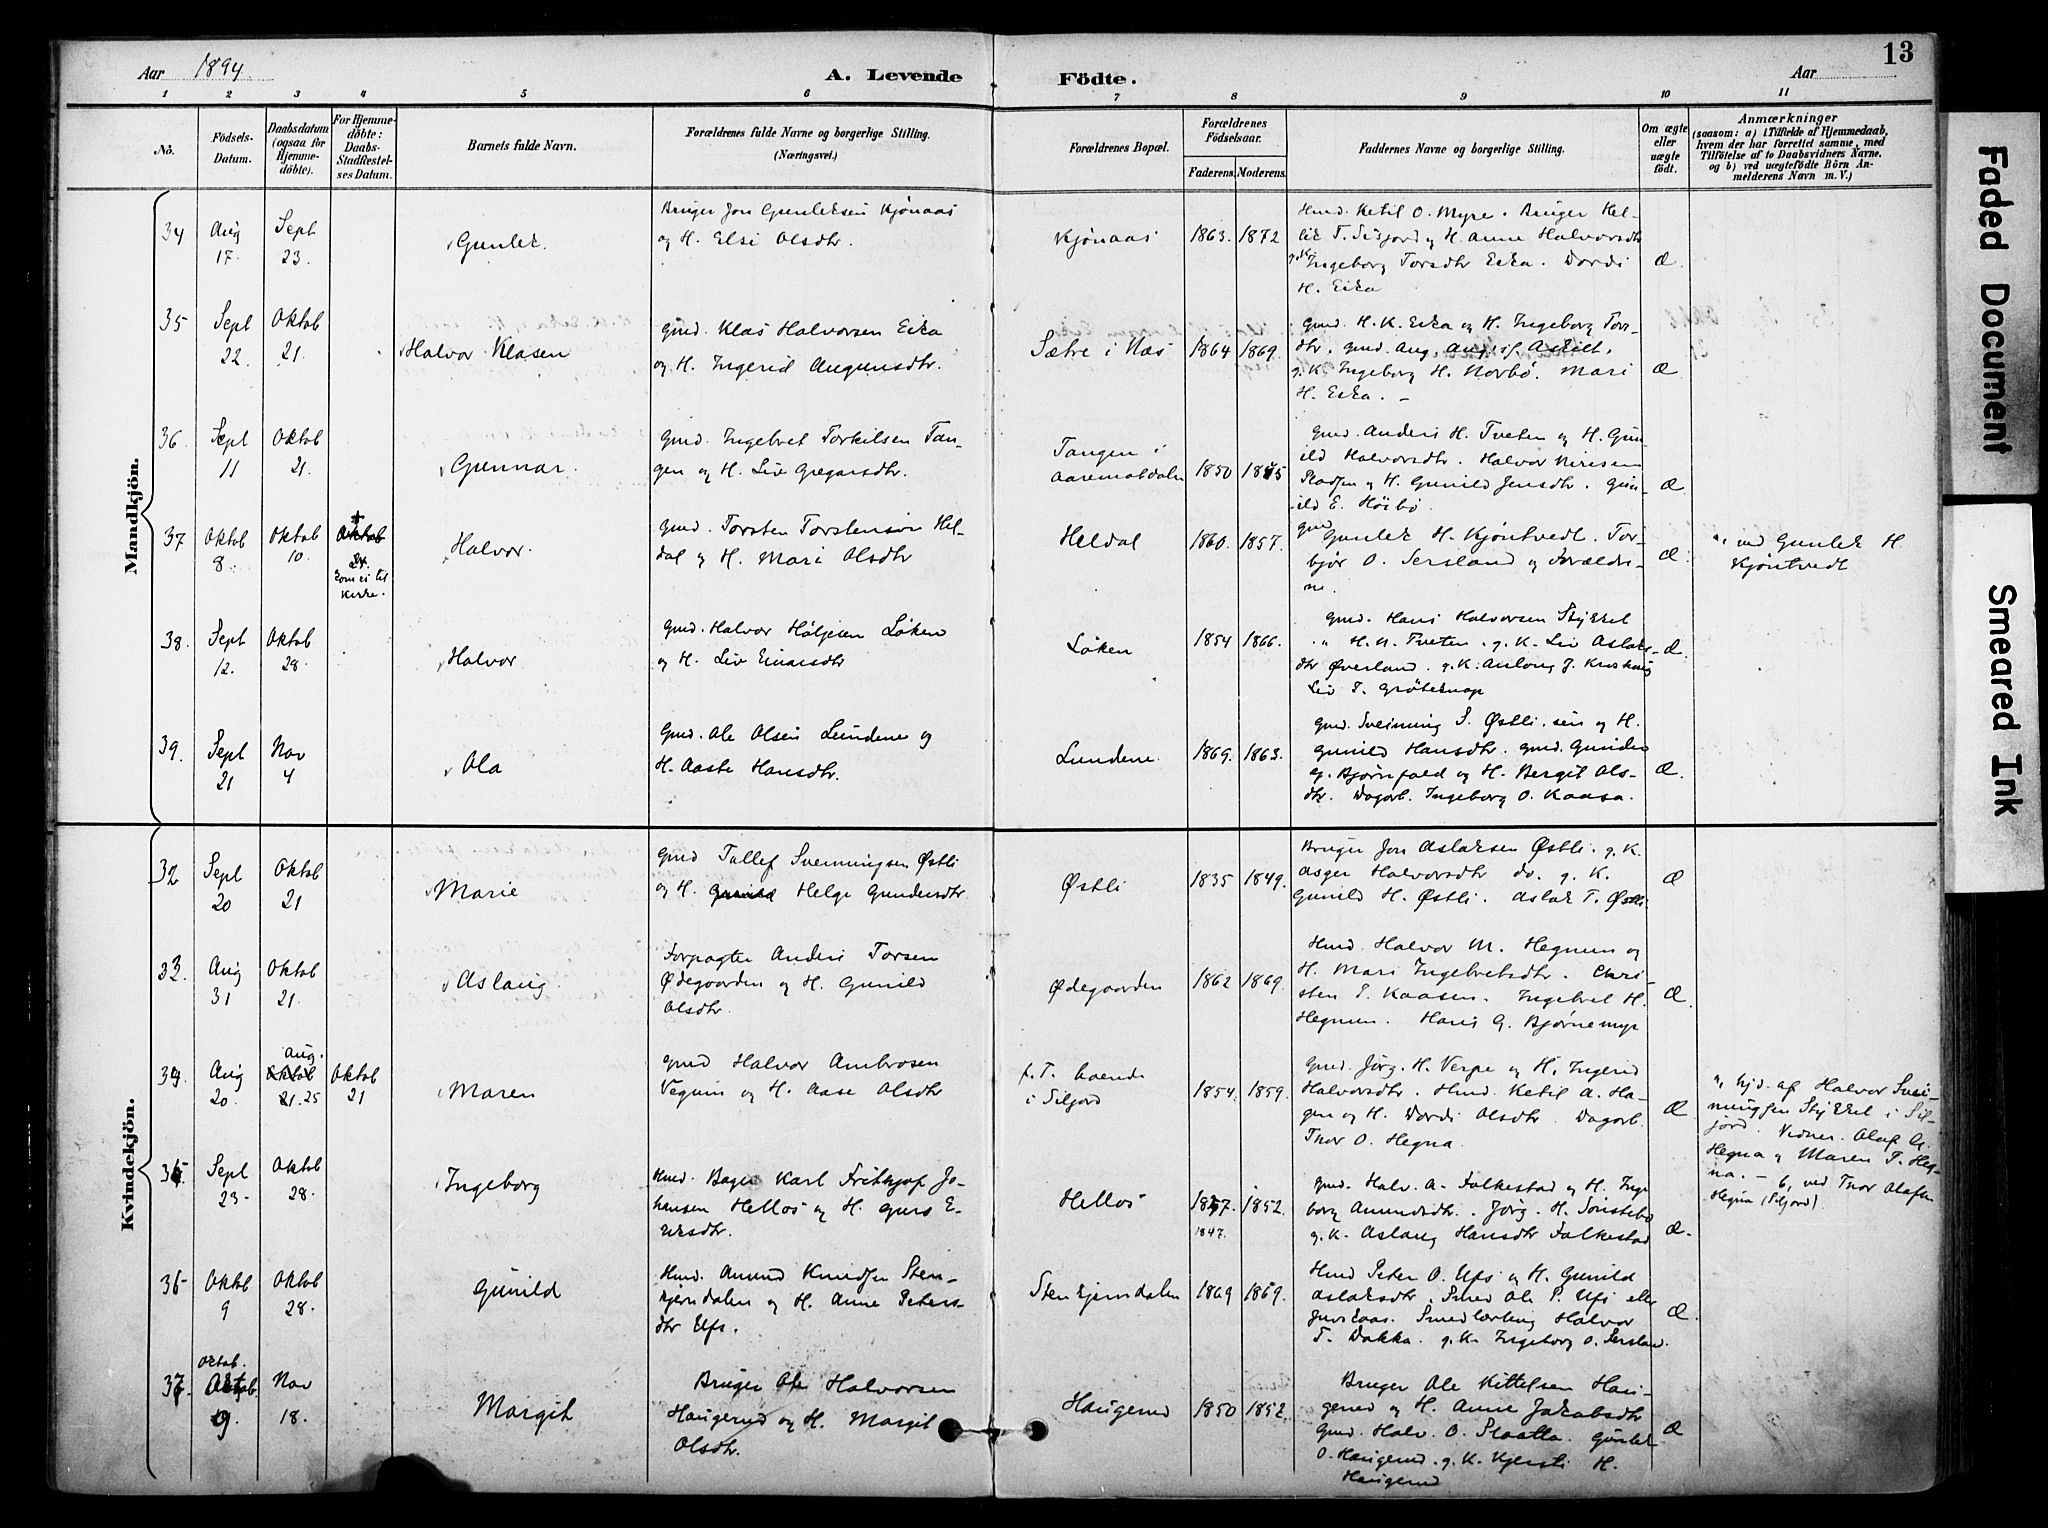 Aar 1894.
A. Levende Födte.
Aar
13
1 2 3 4 5 6 7 8 9 10 11
No.
Födsels-
Datum.
Daabsdatum
(ogsaa for
Hjemme-
döbte).
For Hjemme-
döbte:
Daabs-
Stadfæstel-
ses Datum.
Barnets fulde Navn.
Forældrenes fulde Navne og borgerlige Stilling.
(Næringsvei.)
Forældrenes Bopæl.
Forældrenes
Födselsaar.
Faderens. Moderens.
Faddernes Navne og borgerlige Stilling.
Om ægte
eller
uægte
födt.
Anmærkninger
(saasom: a) i Tilfælde af Hjemmedaab,
hvem der har forrettet samme, med
Tilföielse af to Daabsvidners Navne.
og b) ved uægtefödte Börn An-
melderens Navn m. V.)
Mandkjön.
34
Aug
17.
Sept
23.
Gunlek.
Bruger Jon Gunleksen Kjönaas
og H. Elsi Olsdtr.
Kjönaas
1863. 1872
Hmd. Ketil O. Myre. Bruger Hel-
lik T. Sisjord og H. Anne Halvorsdtr
g.K. Ingeborg Torsdtr Eika. Dordi
H. Eika
Æ.
35
Sept
22.
Oktob
21.
Halvor Klasen
Gmd. Klas Halvorsen Eika
og H. Ingerid Augunsdtr.
Sætre i Næs
1864 1869.
Gmd. H. K. Eika og H. Ingeborg Tors-
dtr. Gmd. Aug. Aug. sf. Askilt.
g.K. Ingeborg H. Norbö. Mari
H. Eika. –
Æ
36
Sept
11
Oktob
21.
Gunnar.
Gmd. Ingebret Torkilsen Tan-
gen og H. Liv Gregarsdtr.
Tangen i
Aarematdalen
1850 1855
Gmd. Anders H. Tveten og H. Gun-
ild Halvorsdtr. Halvor
og H. Gunild Jensdtr. Gun-
ild E. Höibö
Æ.
37
Oktob
8.
Oktob
10.
+
Oktob
21.
kom ei til
Kirke.
Halvor.
Gmd. Torsten Torstensön Hel-
dal og H. Mari Olsdtr
Heldal
1860. 1857.
Gmd Gunlek H. Kjöntvedt. Tor-
björ O. Sersland og Forældre-
ne.
Æ.
a, ved Gunlek H.
Kjöntvedt
38.
Sept
12.
Oktob
28.
Halvor
Gmd. Halvor Höljesen Löken
og H. Liv Einarsdtr
Löken
1854 1866.
Gmd. Hans Halvorsen Stykket
" H. N. Tveten. g.K. Liv Aslaks-
dtr Överland. g.K. Aslaug J.
Liv T. Gröteknap
Æ.
39.
Sept
21
Nov
4
Ola
Gmd. Ole Olsen Lundene og
H. Aaste Hansdtr.
Lundene.
1869. 1863.
Gmd. Sveinung S. Östli. sen og H.
Gunild Hansdtr. Gmd. Gunder
G. Bjørnfald og H. Bergit Ols-
dtr. Dagarb. Ingeborg O. Kaasa.
Æ.
Kvindekjön.
32
Sept
20
Oktob
21
Marie
Gmd Tallef Svenningsen Östli
og H. Gunild Helge Gundersdtr
Østli
1835 1849.
Bruger Jon Aslaksen Östli. g.K.
Asger Halvorsdtr do. g.K.
Gunild H. Östli. Aslak T. Östli
Æ
33.
Aug
31
Oktob
21.
Aslaug.
Forpagter Anders Torsen
Ødegaarden og H. Gunild
Olsdtr.
Ødegaarden
1862 1869.
Hmd. Halvor M. Hegnun og
H. Mari Ingebretsdtr. Chri-
sten T. Kaasen. Ingebret H.
Hegnun. Hans G. Bjørnemyr
Æ.
34.
Aug
20.
Aug.
Oktob
21. 25
Oktob
21
Maren
Gmd Halvor Ambrosen
Vegum og H. Aase Olsdtr
f. T. boende
i Siljord
1854. 1859.
Gmd. Jörg. H. Verpe og H. Ingerid
Halvorsdtr. Hmd. Ketil A. Ha-
gen og H. Dordi Olsdtr. Dagarb.
Thor O. Hegna.
Æ
a, hjd. af Halvor Svei-
nungsen Stykket i Sil-
jord. Vidner. Olaf G.
Hegna og Maren T. Heg-
na. – b, ved Thor Olafsen
Hegna (Siljord).
35.
Sept
23.
Oktob
28.
Ingeborg
Hmd. Bager Karl Frithjof Jo-
hansen Hellos og H. Guro E-
riksdtr.
Hellos
1857. 1852.
1847.
Gmd. Halv. A. Folkestad og H. Inge
borg Amundsdtr. Jörg. H. Sönstebö
g.K. Aslaug Hansdtr Folkestad
Æ.
36
Oktob
9
Oktob
28.
Gunild
Hmd. Amund Knudsen Sten-
kjerndalen og H. Anne Peters-
dtr Ufs.
Stenkjerndalen
1869 1869.
Hmd Peter O. Ufs og H. Gunild
Aslaksdtr. Smed Ole P. Ufs eller
Smedlærling Halvor
T. Dakka. g.K. Ingeborg O. Sersland.
Æ.
37.
Oktob.
9.
Nov
18.
Margit
Bruger Ole Halvorsen
Haugerud og H. Margit
Olsdtr.
Haugerud
1850 1852.
Bruger Ole Kittelsen Hau-
gerud og H. Anne Jakobsdtr
Gmd. Halv. O. Slaatta. Gunlek
O. Haugerud. g.K. Kjersti H.
Haugerud
Æ
Faded Document
Smeared Ink